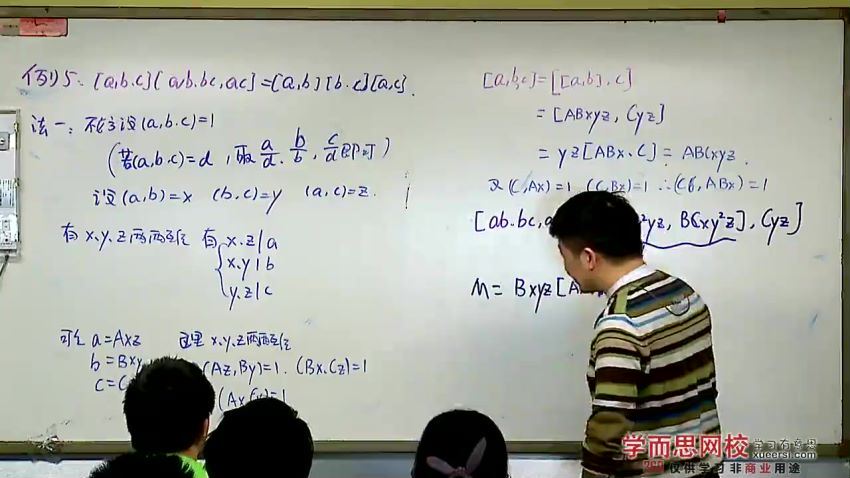 例5. [a,b,c][ab,bc,ac]=[a,b][b,c][a,c].
法一: 不妨设(a,b,c)=1
(若(a,b,c)=d, 取 a/d, b/d, c/d 即可)
设(a,b)=x (b,c)=y (a,c)=z.
有 x,y,z两两互质 有 x,z|a
x,y|b
y,z|c
可令 a=Axz 这里 x,y,z两两互质
b=Bxy (Az,By)=1. (Bx,Cz)=1
c=C
[a,b,c]=[[a,b],c]
=[ABxyz, Cyz]
=yz[ABx,C]=ABCxyz.
又(C,Ax)=1 (C,Bx)=1 ∴(C,ABx)=1
[ab,bc,a ²yz, BCxy²z], Cyz]
M=Bxyz[A
学而思网校
学习有意思
xueersi.com
仅供学习 非商业用途